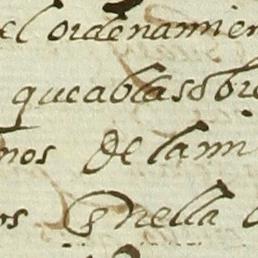 el ordenamien
que abla sobre
nos de la mi
os en ella